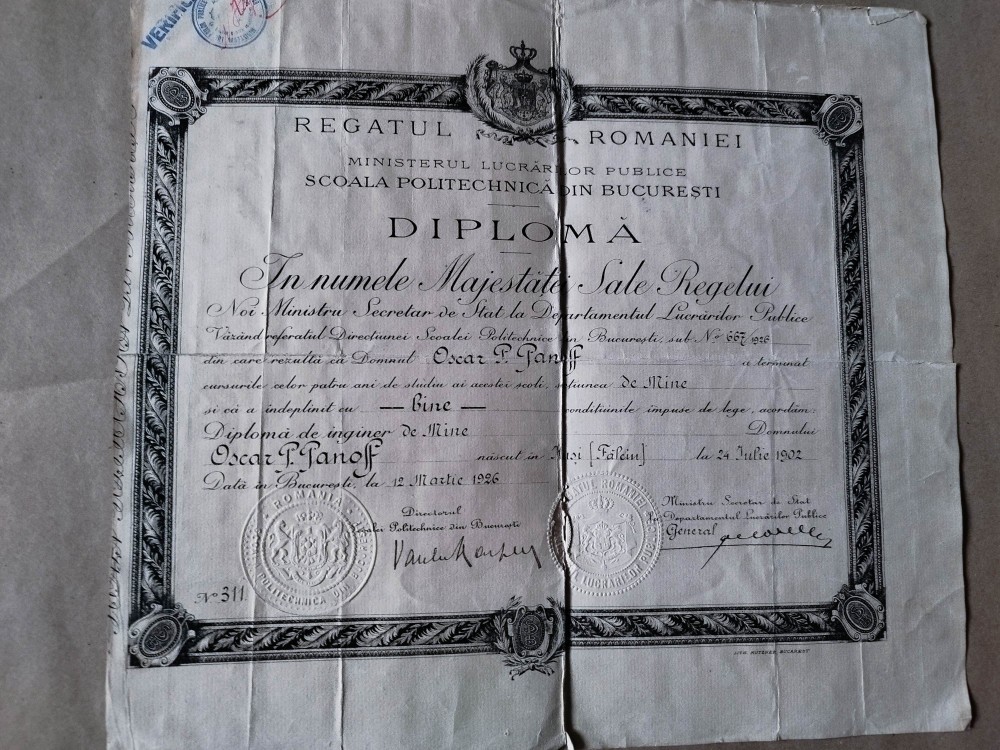 VERIFIC
REGATUL ROMANIEI
MINISTERUL LUCRĂRILOR PUBLICE
SCOALA POLITECHNICĂ DIN BUCUREȘTI
DIPLOMĂ
In numele Majestăței Sale Regelui
Noi Ministru Secretar de Stat la Departamentul Lucrărilor Publice
Văzând referatul Direcțiunei Scoalei Politechnice din București, sub No 667/1926
din care rezultă că Domnul Oscar P. Panoff a terminat
cursurile celor patru ani de studiu ai acestei școli, secțiunea de Mine
și că a îndeplinit cu — bine — condițiunile impuse de lege, acordăm:
Diplomă de inginer de Mine Domnului
Oscar P. Panoff născut în Huși [Fălciu] la 24 Iulie 1902
Dată în București, la 12 Martie 1926
Directorul
Scoalei Politechnice din București
Ministru Secretar de Stat
la Departamentul Lucrărilor Publice
General
ROMANIA
POLITECHNICA DIN BUCUR
REGATUL ROMANIEI
LUCRARILOR PUBLICE
No 311
BUCUREST